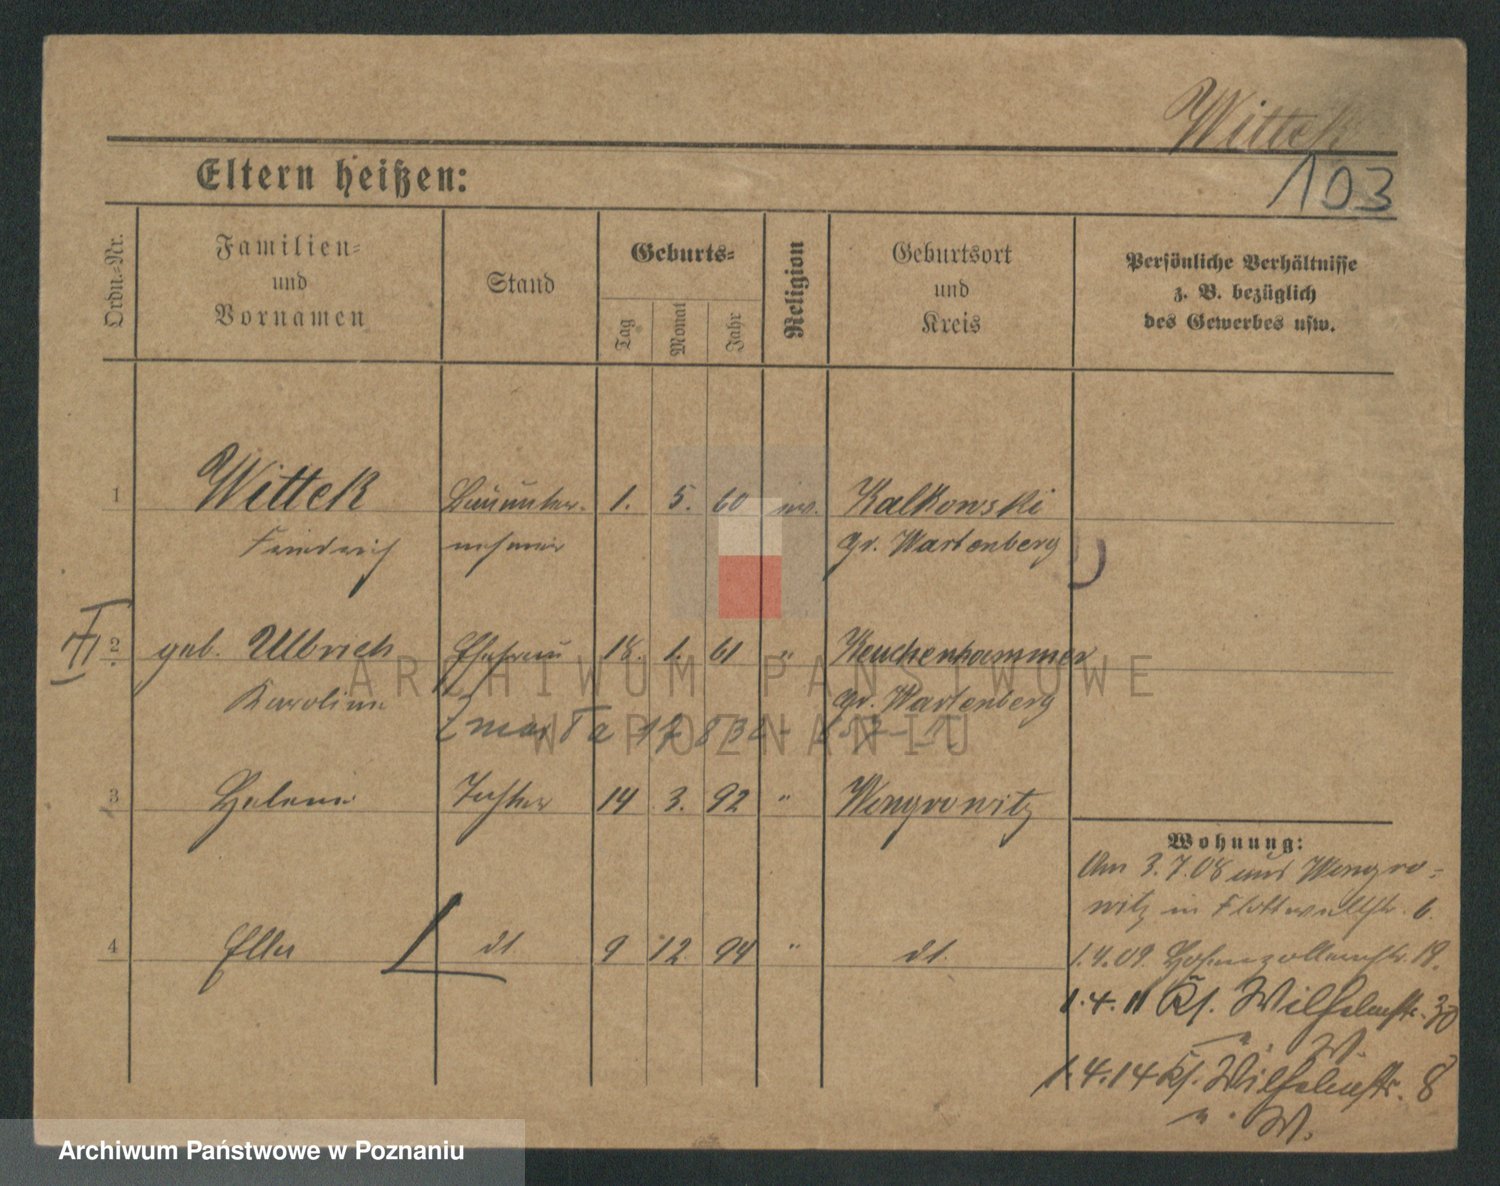 Wittek
103
Eltern heißen:
Ordn.-Nr.
Familien-
und
Vornamen
Stand
Geburts-
Tag
Monat
Jahr
Religion
Geburtsort
und
Kreis
Persönliche Verhältnisse
z. B. bezüglich
des Gewerbes usw.
1 Wittek Bauunter- 1. 5. 60 ev. Kalkowski
Friedrich nehmer Gr. Wartenberg
2 geb. Ulbrich Ehefrau 18. 1. 61 " Keuchenhammer
Karoline Gr. Wartenberg
3 Helene Tochter 14 3. 92 " Wongrowitz
4 Ella dt. 9 12. 94 " dt.
Wohnung:
Am 3.7.08 aus Wongro-
witz in Flottwellstr. 6.
1.4.09. Hohenzollernstr. 19.
1.4.11 Kl. Wilhelmstr. 30
" . W.
1.4.14 Kl. Wilhelmstr. 8
" . W.
ARCHIWUM PAŃSTWOWE
W POZNANIU
Archiwum Państwowe w Poznaniu